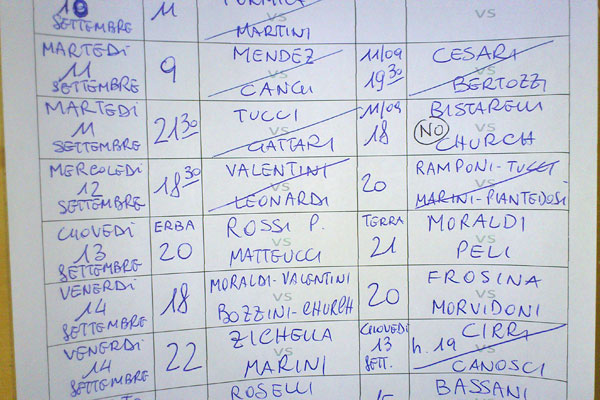 10 11 FORMICA
SETTEMBRE VS VS
MARTINI
MARTEDÌ MENDEZ 11/09 CESARI
11 9 VS 19 30 VS
SETTEMBRE CANCLI BERTOZZI
MARTEDÌ TUCCI 11/09 BISTARELLI
11 21 30 VS 18 NO VS
SETTEMBRE GATTARI CHURCH
MERCOLEDÌ VALENTINI RAMPONI-TUCCI
12 18 30 VS 20 VS
SETTEMBRE LEONARDI MARINI-PIANTEDOSI
GIOVEDÌ ERBA ROSSI P. TERRA MORALDI
13 20 VS 21 VS
SETTEMBRE MATTEUCCI PELI
VENERDÌ MORALDI-VALENTINI FROSINA
14 18 VS 20 VS
SETTEMBRE BOZZINI-CHURCH MORVIDONI
VENERDÌ ZICHELLA GIOVEDÌ CIRRI
14 22 VS 13 h. 19 VS
SETTEMBRE MARINI SETT. CANOSCI
ROSELLI BASSANI